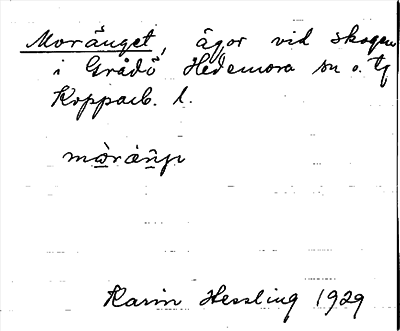 Moränget, ägor vid skogen
i Grådö, Hedemora sn o. tg
Kopparb. l.
Karin Hessling 1929